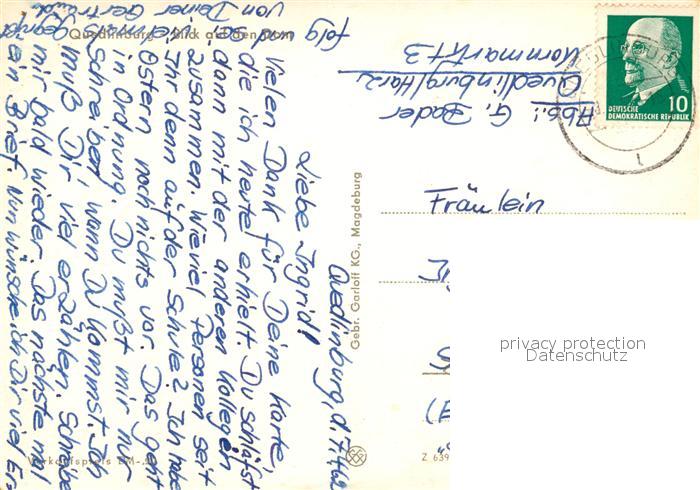 Quedlinburg, d. 7.4.62
Liebe Ingrid!
Vielen Dank für Deine Karte,
die ich heute erhielt. Du schläfst
dann mit der anderen Kollegin
zusammen. Wieviel Personen seit
Ihr denn auf der Schule? Ich habe
Ostern noch nichts vor. Das geht
in Ordnung. Du mußt mir nur
schreiben, wann Du kommst. Ich
muß Dir viel erzählen. Schreibe
mir bald wieder. Das nächste mal
ein Brief. Nun wünsche ich Dir viel Er-
folg
von Deiner Gertraude
Quedlinburg Blick auf den Dom
Verkaufspreis DM
Gebr. Garloff KG., Magdeburg
Z 639
Abs.: G. Bader
Quedlinburg/Harz
Kornmarkt 3
DEUTSCHE
DEMOKRATISCHE REPUBLIK
10
Fräulein
privacy protection
Datenschutz